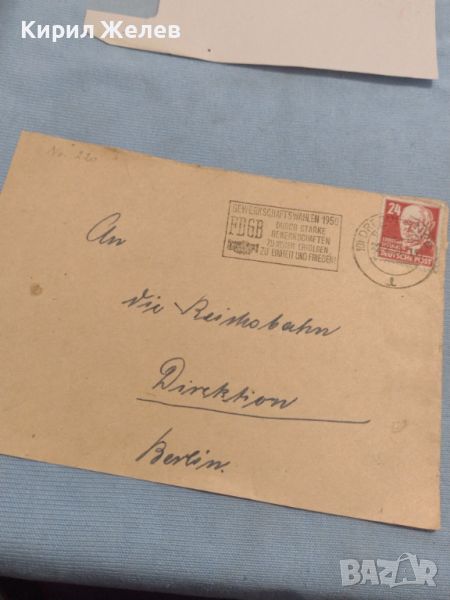 Кирил Желев
No. 220
GEWERKSCHAFTSWAHLEN 1950
FDGB
DURCH STARKE
GEWERKSCHAFTEN
ZU MEHR ERFOLGEN
ZU EINHEIT UND FRIEDEN!
24
DEUTSCHE POST
An
die Reichsbahn
Direktion
Berlin.
BAZAR
.bg